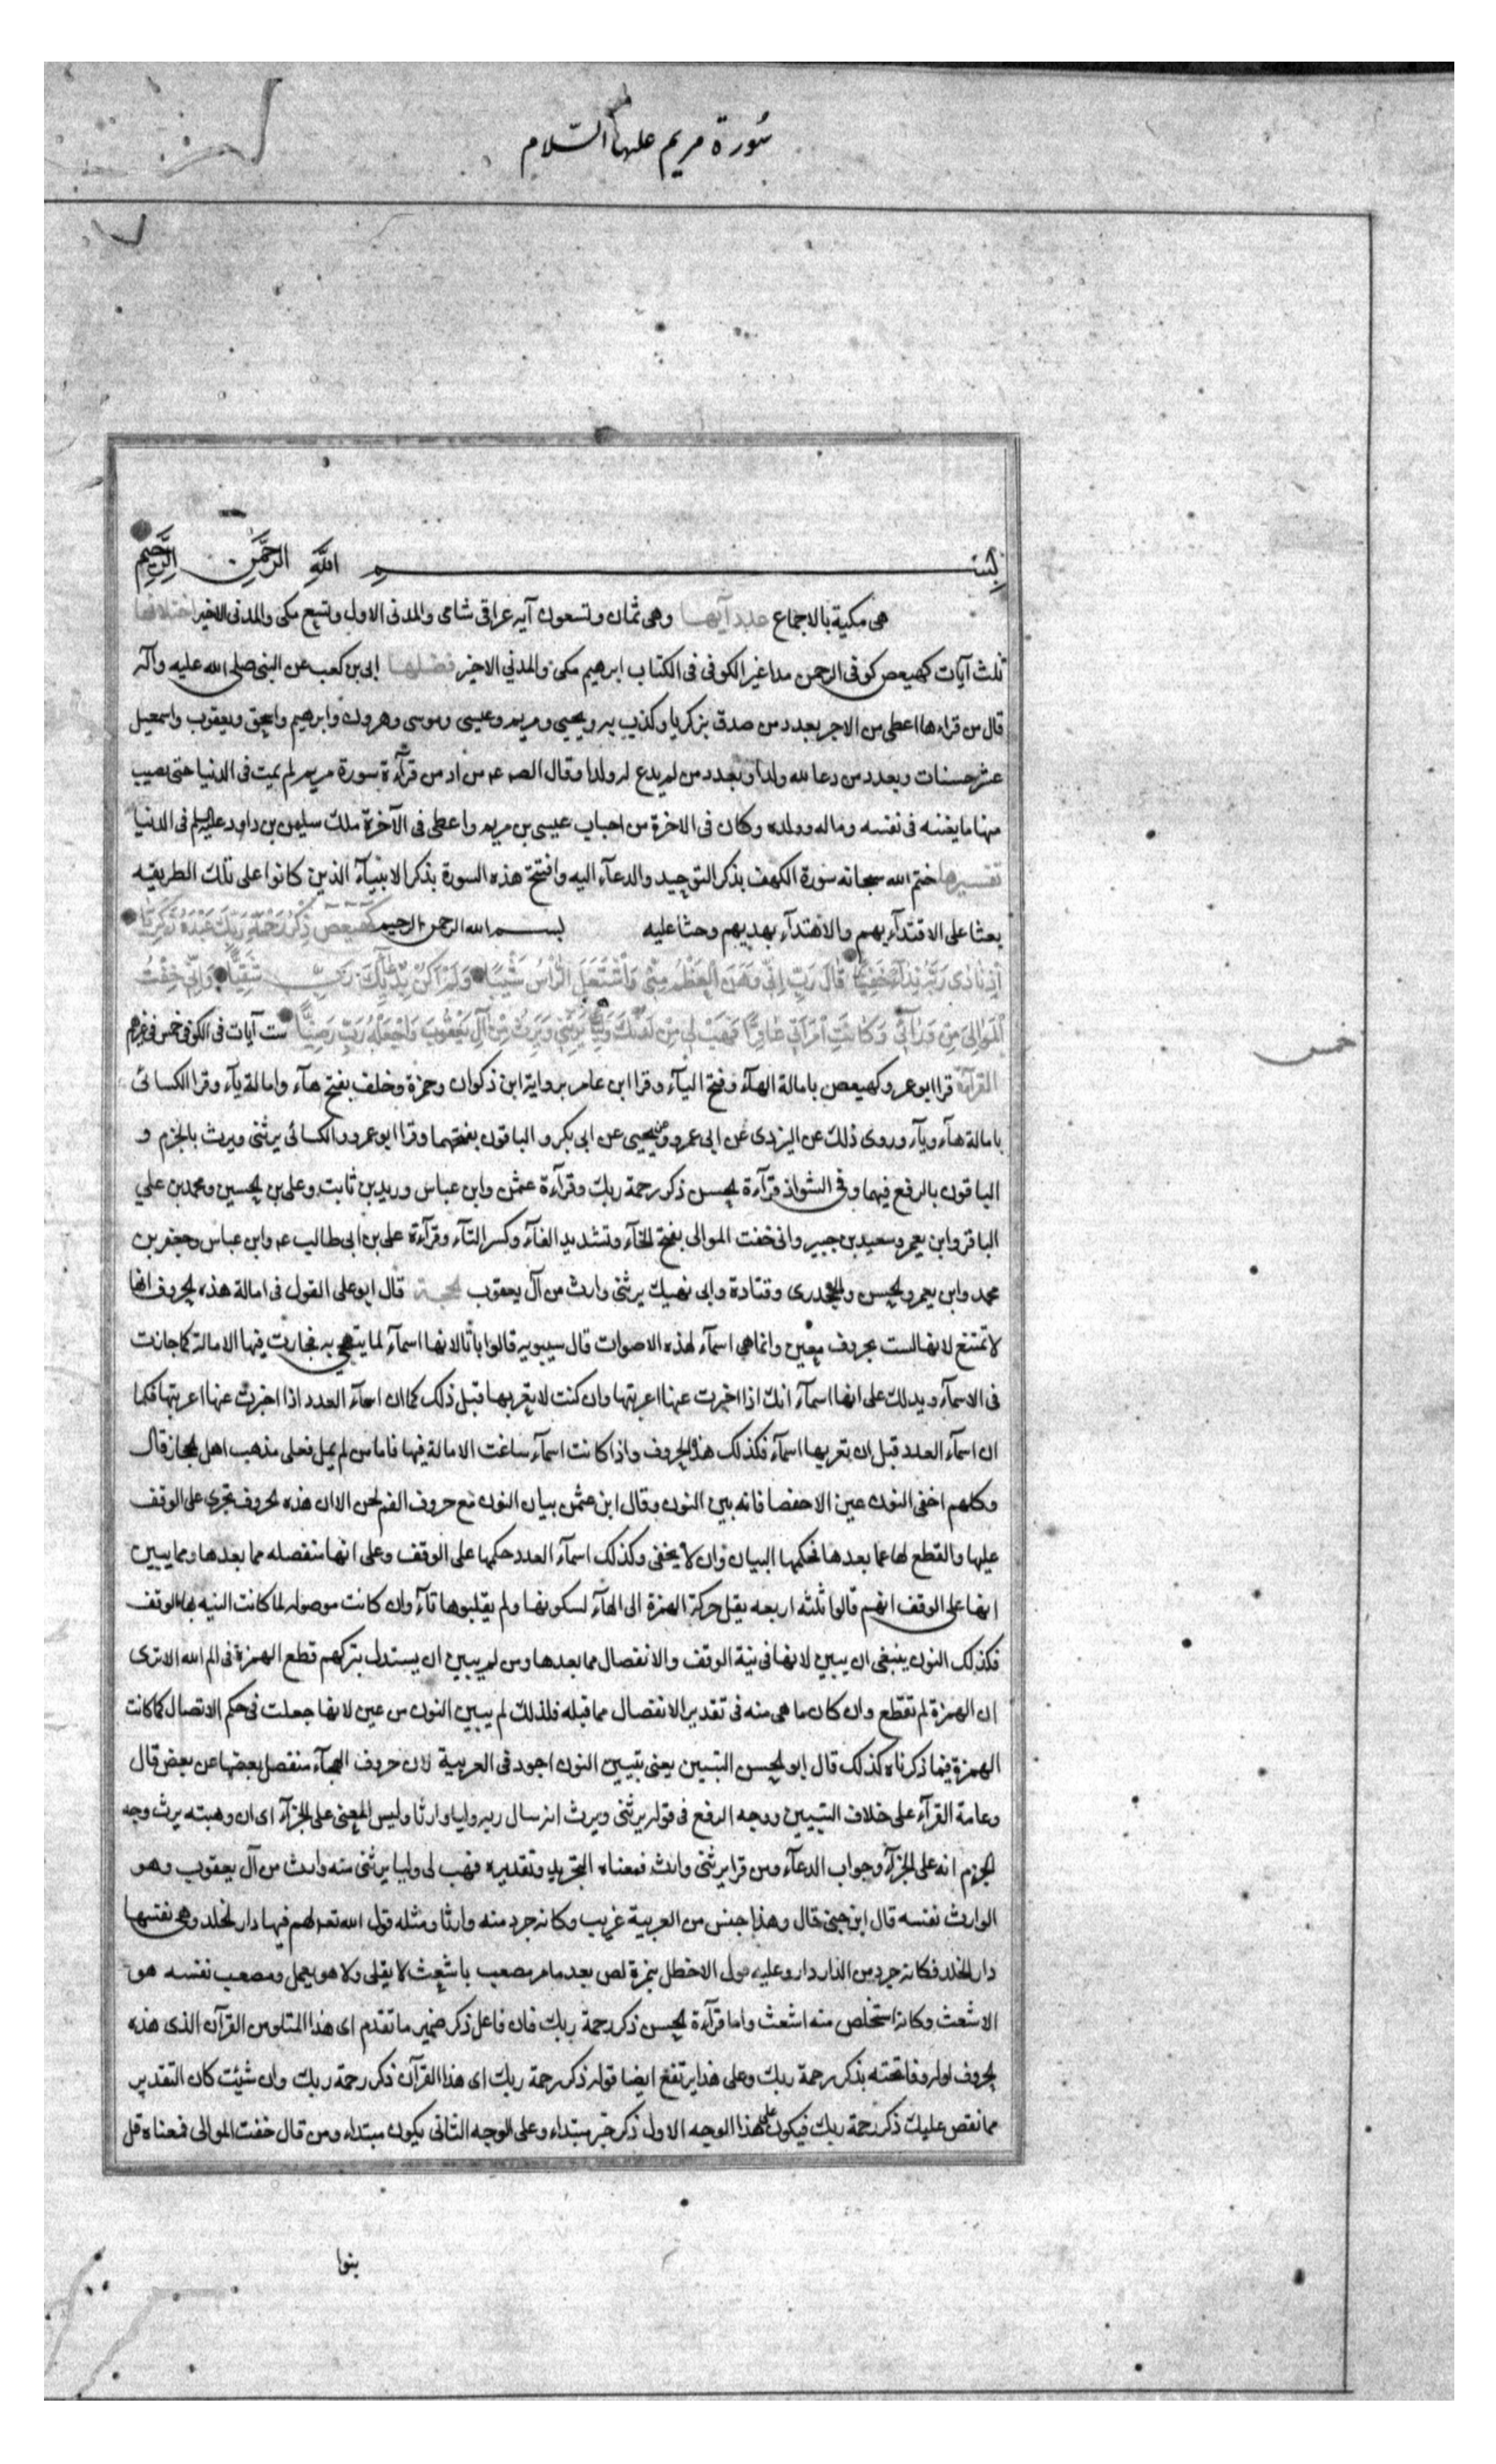 سورة مريم عليها السلام
بسم الله الرحمن الرحيم
هى مكية بالاجماع عدد آيها وهى ثمان وتسعون آيه عراقى شامى والمدنى الاول وتسع مكى والمدنى الاخير اختلافها
ثلث آيات كهيعص كوفى الرحمن مدا غير الكوفى فى الكتاب ابرهيم مكى والمدني الاخير فضلها ابى بن كعب عن النبى صلى الله عليه وآله
قال من قراءها اعطى من الاجر بعدد من صدق بزكريا وكذب به ويحيى ومريم وعيسى وموسى وهرون وابرهيم واسحق ويعقوب واسمعيل
عشر حسنات وبعدد من دعا لله ولدا وبعدد من لم يدع له ولدا وقال الص ع م من ادمن قرآءة سورة مريم لم يمت فى الدنيا حتى يصيب
منها ما يغنيه فى نفسه وماله وولده وكان فى الاخرة من اصحاب عيسى بن مريم واعطى فى الآخرة ملك سليمن بن داود عليهم السلم فى الدنيا
تفسيرها ختم الله سبحانه سورة الكهف بذكر التوحيد والدعآء اليه وافتتح هذه السورة بذكر الانبيآء الذين كانوا على تلك الطريقه
بعثا على الاقتدآء بهم والاهتدآء بهديهم وحثا عليه بسم الله الرحمن الرحيم كهيعص ذكر رحمة ربك عبده زكريا
اذ نادى ربه ندآء خفيا قال رب انى وهن العظم منى واشتعل الرأس شيبا ولم اكن بدعآئك رب شقيا وانى خفت
الموالى من ورآئى وكانت امرأتى عاقرا فهب لى من لدنك وليا يرثنى ويرث من آل يعقوب واجعله رب رضيا ست آيات فى الكوفى خمس فى غيرهم
خمس
القرآءة قرا ابو عمرو كهيعص بامالة الهآء وفتح اليآء وقرا ابن عامر برواية ابن ذكوان وحمزة وخلف بفتح هآء وامالة يآء وقرا الكسائى
بامالة هآء ويآء وروى ذلك عن اليزيدى عن ابى عمرو وعن يحيى عن ابى بكر والباقون بفتحهما وقرا ابو عمرو والكسائى يرثنى ويرث بالجزم و
الباقون بالرفع فيهما وفى الشواذ قرآءة الحسن ذكر رحمة ربك وقرآءة عثمن وابن عباس وزيد بن ثابت وعلى بن الحسين ومحمد بن علي
الباقر وابن يعمر وسعيد بن جبير وانى خفت الموالى بفتح الخآء وتشديد الفآء وكسر التآء وقرآءة على بن ابى طالب ع م وابن عباس وجعفر بن
محمد وابن يعمر والحسن والجحدرى وقتادة وابى نهيك يرثنى وارث من آل يعقوب الحجة قال ابو على القول فى امالة هذه الحروف انها
لا تمتنع لانها ليست بحروف معنى وانما هى اسمآء لهذه الاصوات قال سيبويه قالوا باتا لانها اسمآء لما يتهجى به فجازت فيها الامالة كما جازت
فى الاسمآء ويدلك على انها اسمآء انك اذا اخبرت عنها اعربتها وان كنت لا تعربها قبل ذلك كما ان اسمآء العدد اذا اخبرت عنها اعربتها فكما
ان اسمآء العدد قبل ان تعربها اسمآء فكذلك هذه الحروف واذا كانت اسمآء ساغت الامالة فيها فاما من لم يمل فعلى مذهب اهل الحجاز قال
وكلهم اخفى النون عين الا حفصا فانه بين النون وقال ابن عثمن بيان النون مع حروف الفم لحن الا ان هذه الحروف تجرى على الوقف
عليها والقطع لها عما بعدها فحكمها البيان وان لا يخفى وكذلك اسمآء العدد حكمها على الوقف وعلى انها منفصله مما بعدها ومما يبين
انها على الوقف انهم قالوا ثلثه اربعه بقل حركة الهمزة الى الهآء لسكونها ولم يقلبوها تآء وان كانت موصوله لما كانت النيه بها الوقف
فكذلك النون ينبغى ان يبين لانها فى نية الوقف والانفصال مما بعدها ومن لم يبين ان يستدل بتركهم قطع الهمزة فى الم الله الا ترى
ان الهمزة لم تقطع وان كان ما هى منه فى تقدير الانفصال مما قبله فلذلك لم يبين النون من عين لانها جعلت فى حكم الاتصال كما كانت
الهمزة فيما ذكرناه كذلك قال ابو الحسن التبيين يعنى تبيين النون اجود فى العربية لان حروف الهجآء منفصل بعضها عن بعض قال
وعامة القرآء على خلاف التبيين ووجه الرفع فى قوله يرثنى ويرث انه سال ربه وليا وارثا وليس المعنى على الجزآء اى ان وهبته يرث وجه
الجزم انه على الجزآء وجواب الدعآء ومن قرا يرثنى وارث فمعناه التجريد وتقديره فهب لى وليا يرثنى منه وارث من آل يعقوب وهو
الوارث نفسه قال ابن جنى قال وهذا جنس من العربية غريب وكانه جرد منه وارثا ومثله قول الله تع لهم فيها دار الخلد وهى نفسها
دار الخلد فكانه جرد من الدار دار وعليه قول الاخطل بنزوة لص بعد ما مر مصعب باشعث لا يفلى ولا هو يعمل ومصعب نفسه هو
الاشعث وكانه استخلص منه اشعث واما قرآءة الحسن ذكر رحمة ربك فان فاعل ذكر ضمير ما تقدم اى هذا المتلو من القرآن الذى هذه
الحروف اوله وفاتحته يذكر رحمة ربك وعلى هذا يرتفع ايضا قوله ذكر رحمة ربك اى هذا القرآن ذكر رحمة ربك وان شئت كان التقدير
مما نقص عليك ذكر رحمة ربك فيكون على هذا الوجه الاول ذكر خبر مبتداء وعلى الوجه الثانى يكون مبتداء ومن قال خفت الموالى فمعناه قل
بنوا